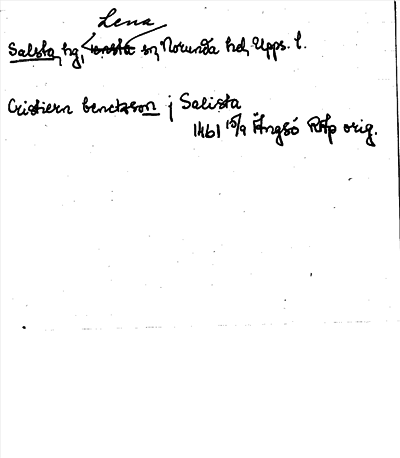 Lena
Salsta, hg, sn, Norunda hd, Upps. l.
Cristiern benctsson j Salista
1461 15/9 Ängsö RAp orig.